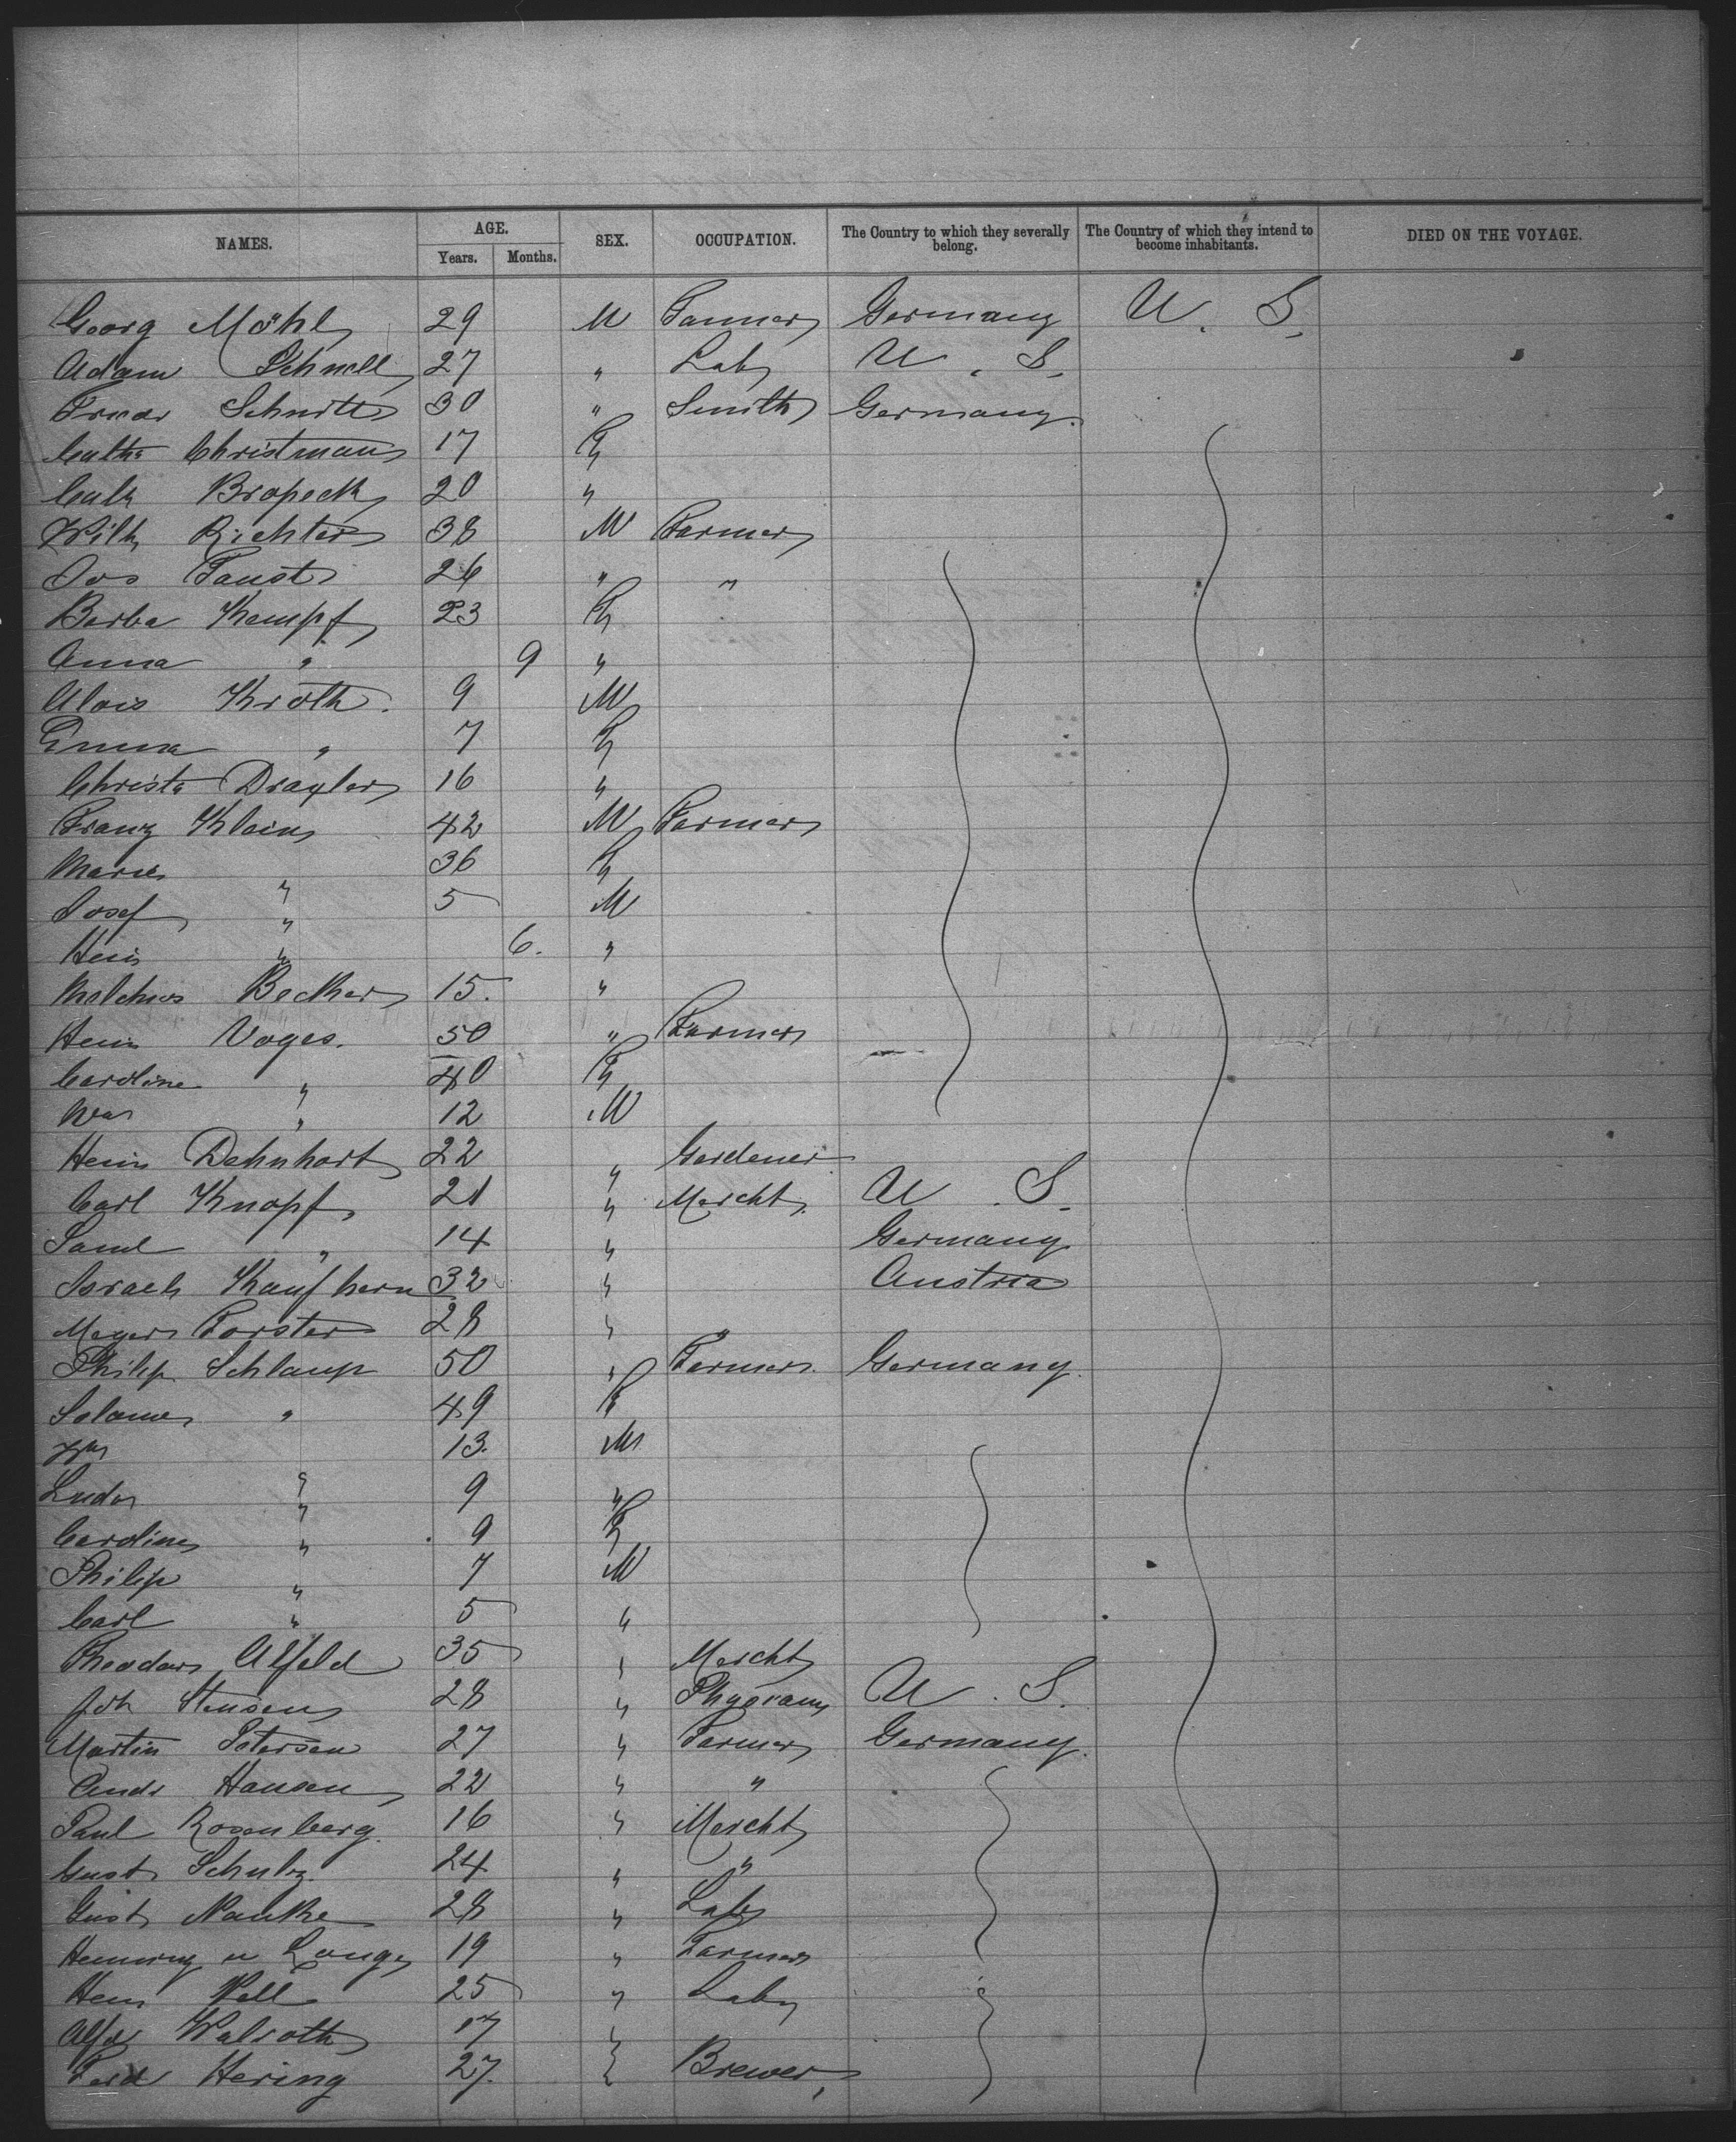 NAMES. AGE. Years. Months. SEX. OCCUPATION. The Country to which they severally belong. The Country of which they intend to become inhabitants. DIED ON THE VOYAGE.
Georg Möhl 29 M Farmer Germany U. S.
Adam Schnell 27 " Lab U. S.
Schmitt 30 " Smith Germany.
Christman 17 F
20 "
Wilh Richter 38 M Farmer
Jos Faust 26 " "
Barba Kempf 23 F
Anna " 9 "
Alois Kroth. 9 M
Emma " 7 F
Christa 16 "
Franz Klein 42 M Farmer
Marie " 36 F
Josef " 5 M
Hein " 6. "
Melchior Becker 15. "
Hein Voges. 50 " Farmer
Caroline " 40 F
" 12 M
Hein Dehnhart 22 " Gardener
Carl Knopf 21 " Mercht. U. S.
Saml " 14 " Germany
Israel 32 " Austria
Meyer Forster 28 " "
Philip Schlaup 50 " Farmer. Germany.
Salome " 49 F
Wm " 13. M
Ludw " 9 "
Caroline " 9 F
Philip " 7 M
Carl " 5 "
Theodor Alfeld 35 " Mercht
Joh 28 " U. S.
Martin Petersen 27 " Farmer Germany.
Andr Hansen 22 " "
Paul Rosenberg. 16 " Mercht
Gust Schulz. 24 " "
Gust 28 " Lab
Henning v Lange 19 " Farmer
Hein 25 " Lab
Alfr Walroth 17 "
Ferd Hering 27. " Brewer,